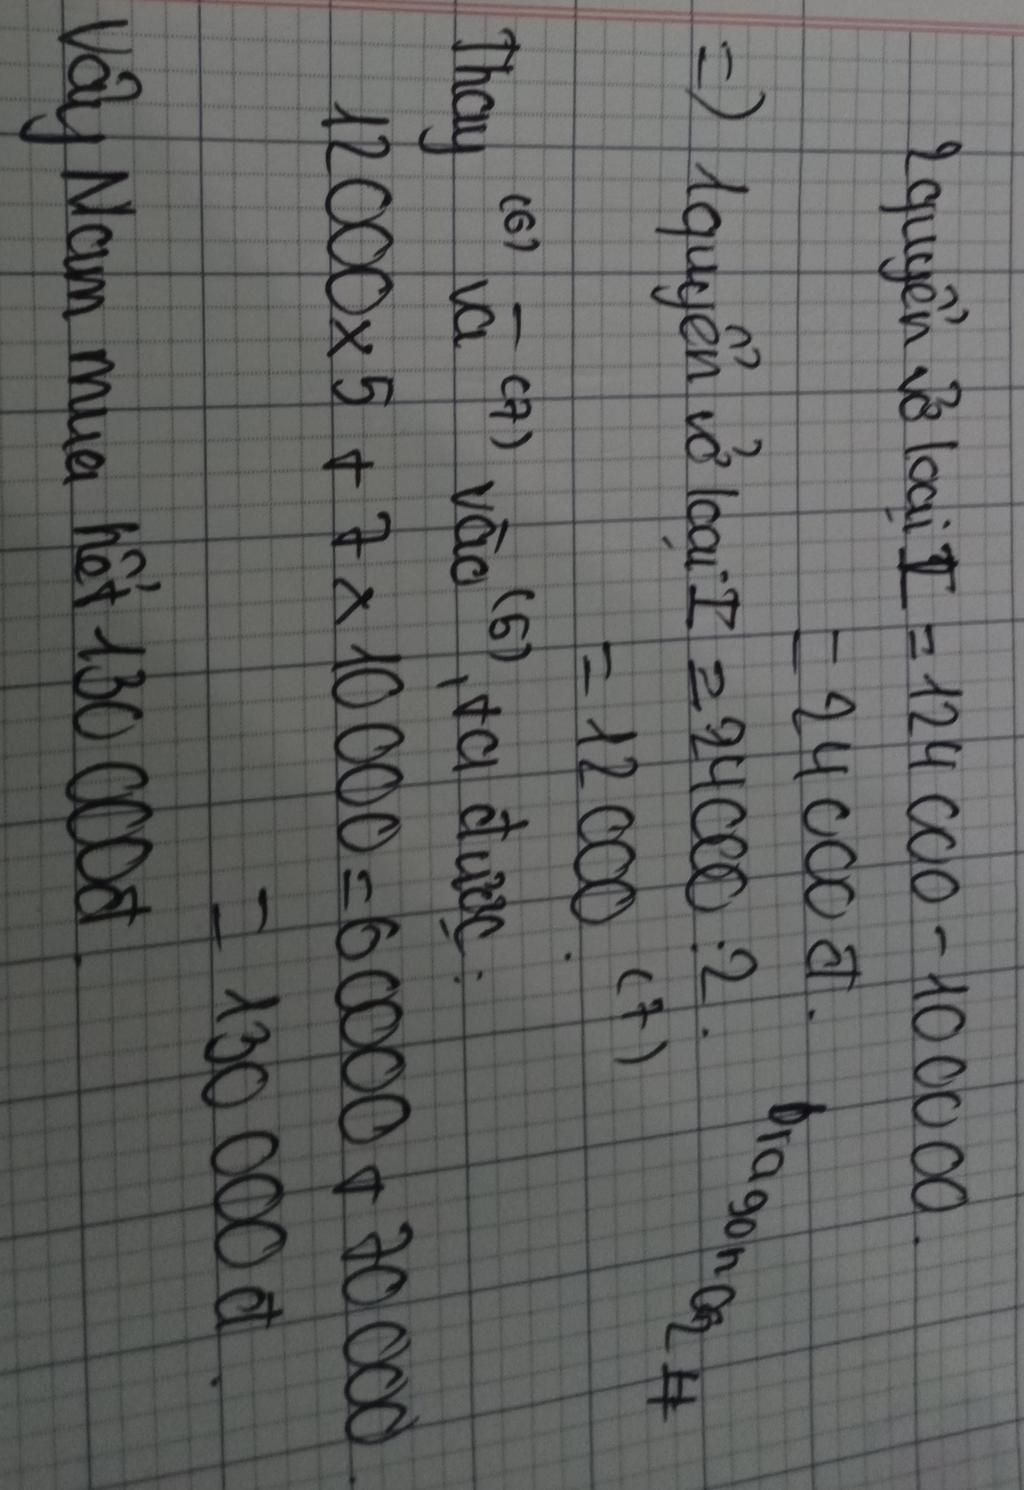 2 quyển vở loại I = 124 000 - 100 000.
= 24 000 đ.
=) 1 quyển vở loại I = 24 000 : 2.
= 12 000. (7)
dragon02 #
Thay (6) và (7) vào (5), ta được:
12 000 x 5 + 7 x 10 000 = 60000 + 70 000
= 130 000 đ.
Vậy Nam mua hết 130 000đ.